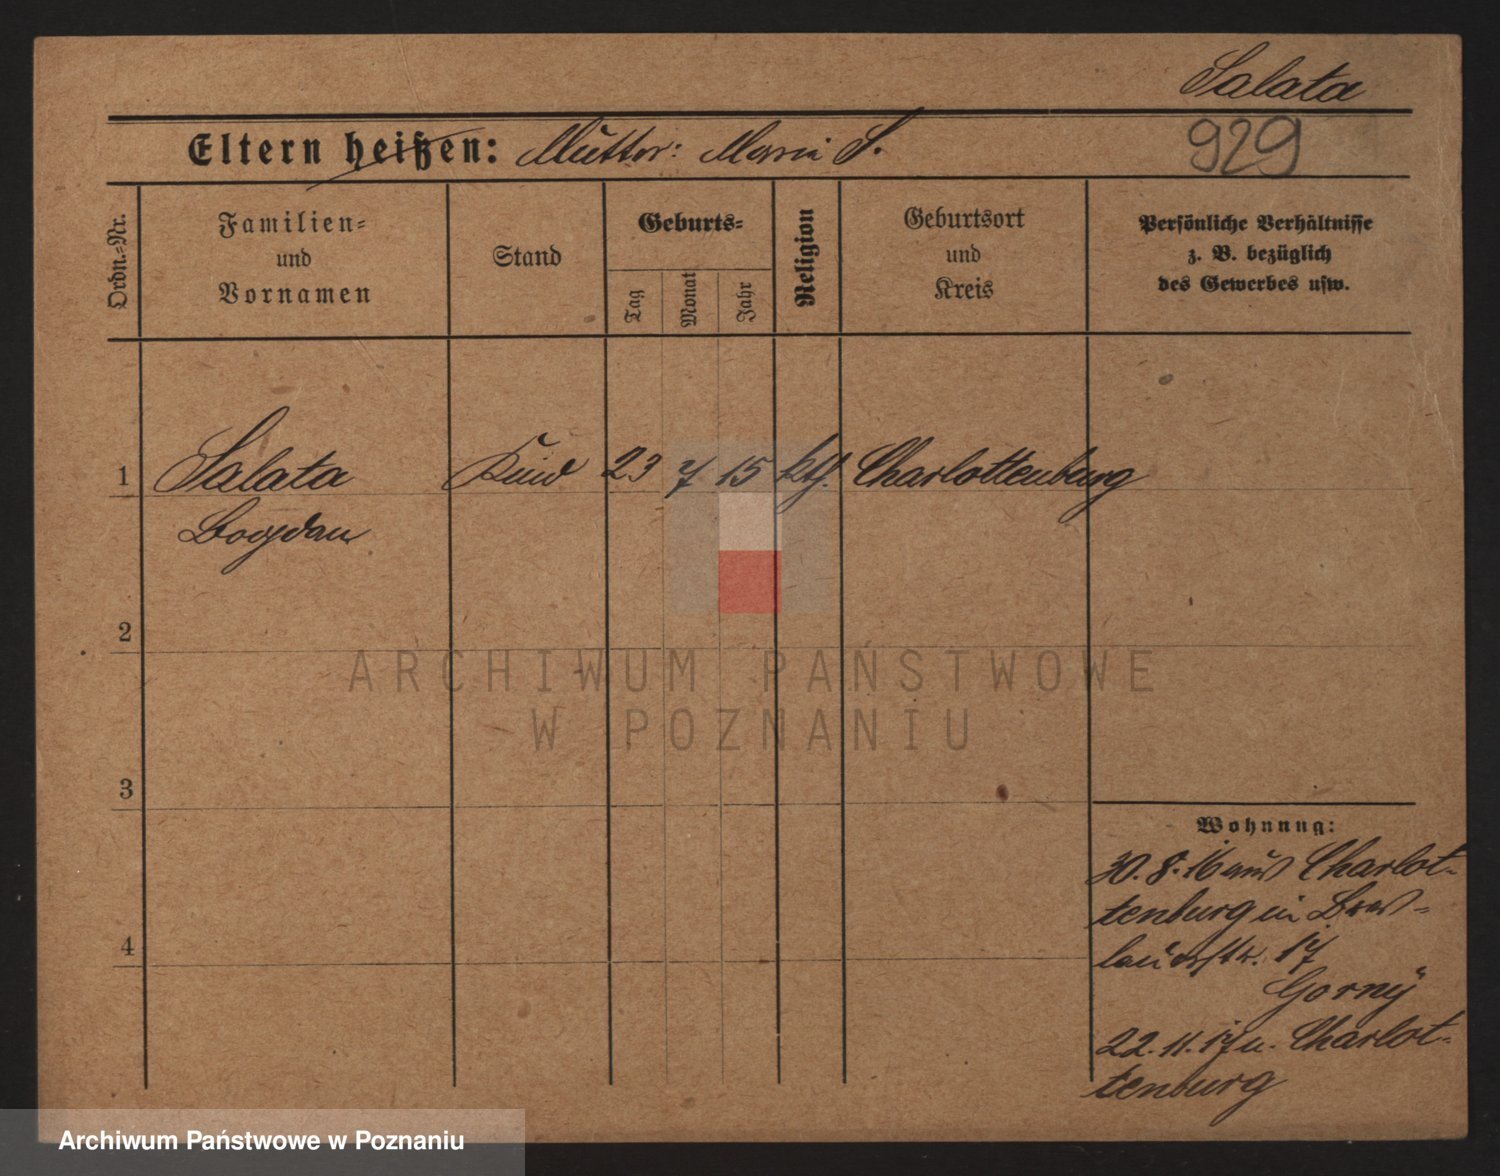 Salata
929
Eltern heißen: Mutter: Maria S.
Ordn.-Nr.
Familien-
und
Vornamen
Stand
Geburts-
Tag
Monat
Jahr
Religion
Geburtsort
und
Kreis
Persönliche Verhältnisse
z. B. bezüglich
des Gewerbes usw.
1 Salata Kind 23 7 15 kth. Charlottenburg
Bogdan
2
3
4
Wohnung:
30.8.16 aus Charlot-
tenburg in Bres-
lauerstr. 17
Gorny
22.11.17 n. Charlot-
tenburg
ARCHIWUM PAŃSTWOWE
W POZNANIU
Archiwum Państwowe w Poznaniu